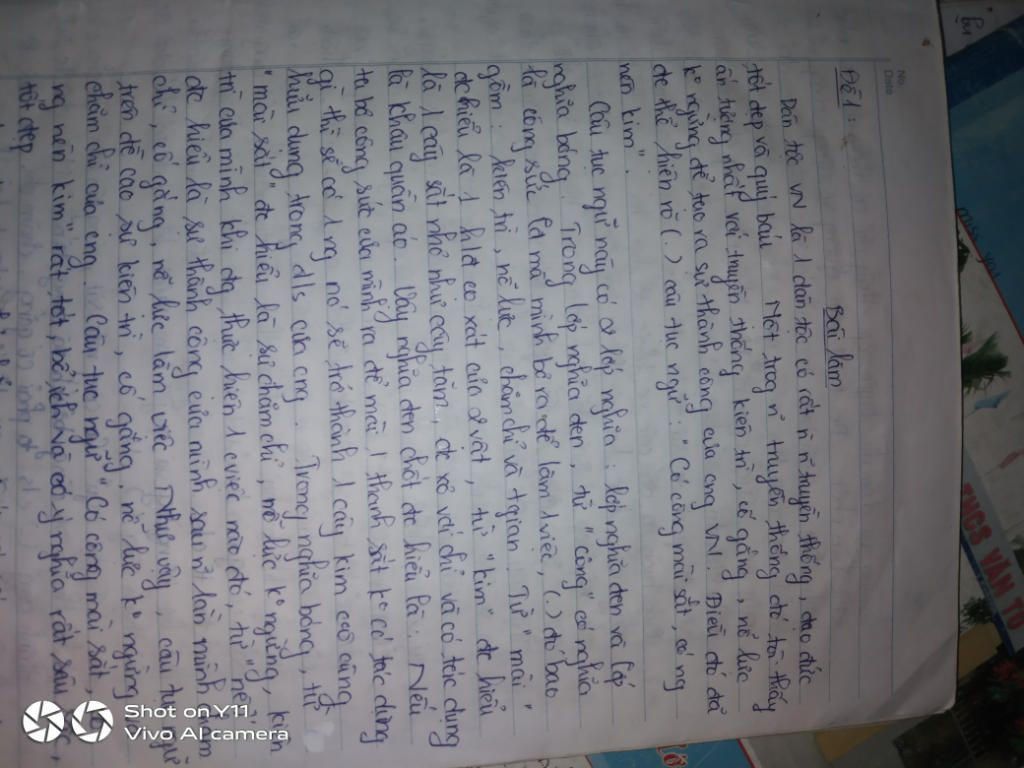 No.
Date
Đề 1:
Bài làm
Dân tộc VN là 1 dân tộc có rất n n truyền thống, đạo đức
tốt đẹp và quý báu. Một trog n truyền thống đó tôi thấy
ấn tượng nhất với truyền thống kiên trì, cố gắng, nỗ lực
ko ngừng để tạo ra sự thành công của cng VN. Điều đó đã
đc thể hiện rõ (.) câu tục ngữ: "Có công mài sắt, có ng
nên kim".
Câu tục ngữ này có 2 lớp nghĩa: lớp nghĩa đen và lớp
nghĩa bóng. Trong lớp nghĩa đen, từ "công" có nghĩa
là công sức mà mình bỏ ra để làm 1 việc, (.) đó bao
gồm: kiên trì, nỗ lực, chăm chỉ và tgian. Từ "mài"
đc hiểu là 1 hđ cọ xát của 2 vật, từ "kim" đc hiểu
là 1 cây sắt nhỏ như cây tăm, để xỏ với chỉ và có tác dụng
là khâu quần áo. Vậy nghĩa đen chốt đc hiểu là: Nếu
ta bỏ công sức của mình ra để mài 1 thanh sắt ko có tác dụng
gì thì sẽ có 1 ng nó sẽ trở thành 1 cây kim vô cùng
hữu dụng trong đ/s của cng. Trong nghĩa bóng, từ
"mài sắt" đc hiểu là sự chăm chỉ, nỗ lực ko ngừng, kiên
trì của mình khi đg thực hiện 1 cviệc nào đó, từ "nên kim"
đc hiểu là sự thành công của mình sau n lần mình chăm
chỉ, cố gắng, nỗ lực làm việc. Như vậy, câu tục ngữ
trên đề cao sự kiên trì, cố gắng, nỗ lực ko ngừng
chăm chỉ của cng. Câu tục ngữ "Có công mài sắt, có
ng nên kim" rất tốt, bổ ích và có ý nghĩa rất sâu sắc,
tốt đẹp
THCS VĂN TỰ
Shot on Y11
Vivo AI camera